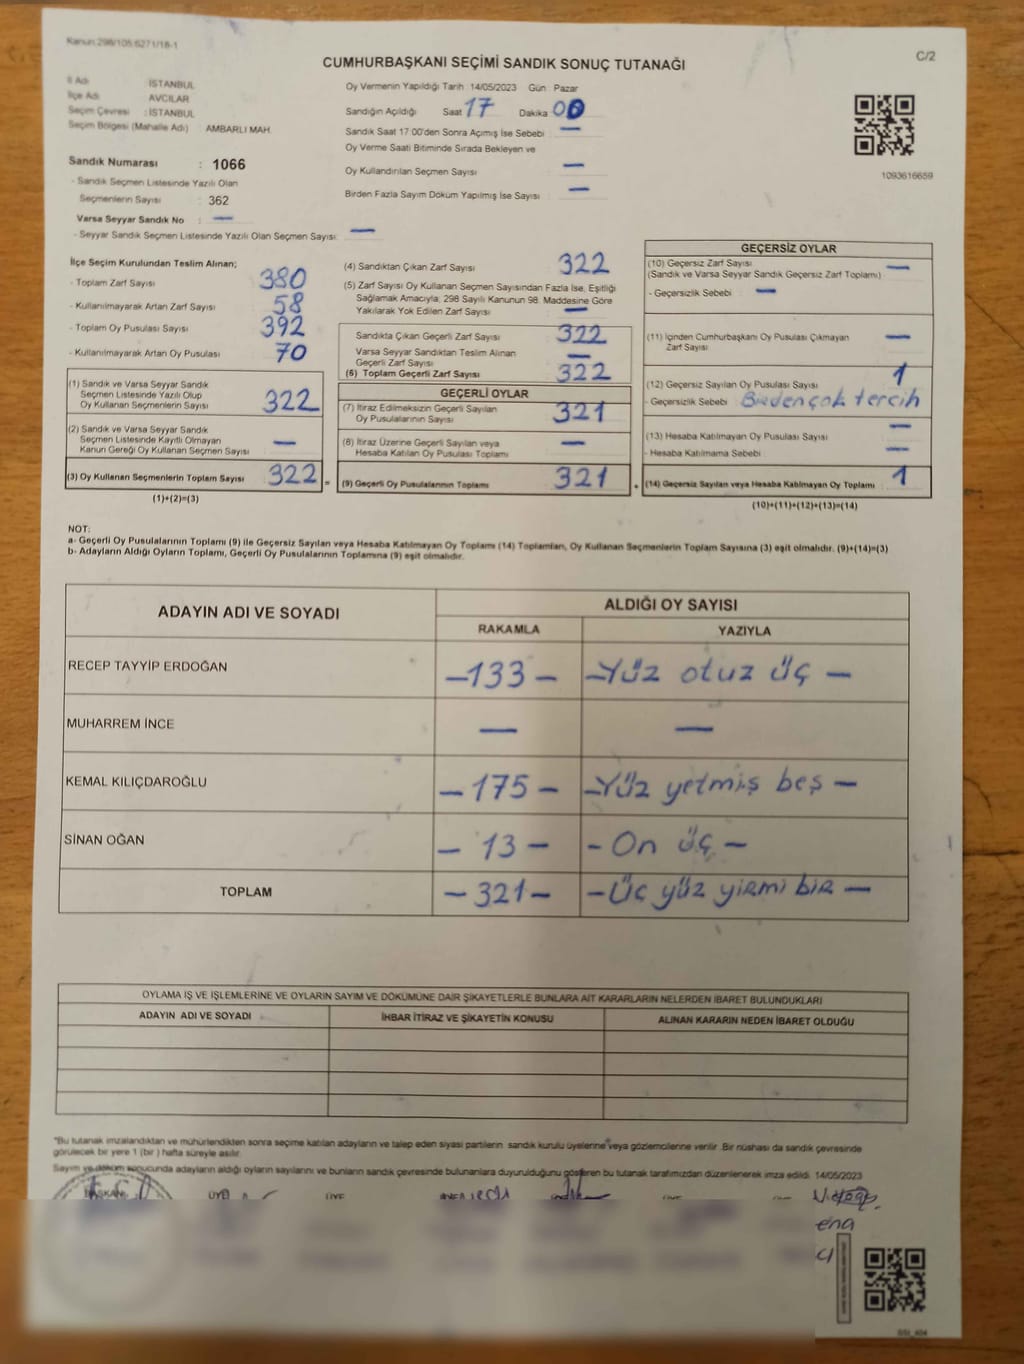 Kanun:298/105;6271/18-1
C/2
CUMHURBAŞKANI SEÇİMİ SANDIK SONUÇ TUTANAĞI
İl Adı : İSTANBUL
İlçe Adı : AVCILAR
Seçim Çevresi : İSTANBUL
Seçim Bölgesi (Mahalle Adı) : AMBARLI MAH.
Sandık Numarası : 1066
- Sandık Seçmen Listesinde Yazılı Olan
Seçmenlerin Sayısı : 362
Varsa Seyyar Sandık No : —
- Seyyar Sandık Seçmen Listesinde Yazılı Olan Seçmen Sayısı: —
Oy Vermenin Yapıldığı Tarih :14/05/2023 Gün : Pazar
Sandığın Açıldığı Saat 17 Dakika 00
Sandık Saat 17:00'den Sonra Açımış İse Sebebi : —
Oy Verme Saati Bitiminde Sırada Bekleyen ve
Oy Kullandırılan Seçmen Sayısı : —
Birden Fazla Sayım Döküm Yapılmış İse Sayısı : —
1093616659
İlçe Seçim Kurulundan Teslim Alınan;
- Toplam Zarf Sayısı : 380
- Kullanılmayarak Artan Zarf Sayısı : 58
- Toplam Oy Pusulası Sayısı : 392
- Kullanılmayarak Artan Oy Pusulası : 70
(1) Sandık ve Varsa Seyyar Sandık
Seçmen Listesinde Yazılı Olup
Oy Kullanan Seçmenlerin Sayısı : 322
(2) Sandık ve Varsa Seyyar Sandık
Seçmen Listesinde Kayıtlı Olmayan
Kanun Gereği Oy Kullanan Seçmen Sayısı : —
(3) Oy Kullanan Seçmenlerin Toplam Sayısı : 322
(1)+(2)=(3)
(4) Sandıktan Çıkan Zarf Sayısı : 322
(5) Zarf Sayısı Oy Kullanan Seçmen Sayısından Fazla İse, Eşitliği
Sağlamak Amacıyla; 298 Sayılı Kanunun 98. Maddesine Göre
Yakılarak Yok Edilen Zarf Sayısı : —
Sandıkta Çıkan Geçerli Zarf Sayısı : 322
Varsa Seyyar Sandıktan Teslim Alınan
Geçerli Zarf Sayısı : —
(6) Toplam Geçerli Zarf Sayısı : 322
GEÇERLİ OYLAR
(7) İtiraz Edilmeksizin Geçerli Sayılan
Oy Pusulalarının Sayısı : 321
(8) İtiraz Üzerine Geçerli Sayılan veya
Hesaba Katılan Oy Pusulası Toplamı : —
(9) Geçerli Oy Pusulalarının Toplamı : 321
GEÇERSİZ OYLAR
(10) Geçersiz Zarf Sayısı
(Sandık ve Varsa Seyyar Sandık Geçersiz Zarf Toplamı) : —
- Geçersizlik Sebebi : —
(11) İçinden Cumhurbaşkanı Oy Pusulası Çıkmayan
Zarf Sayısı : —
(12) Geçersiz Sayılan Oy Pusulası Sayısı : 1
- Geçersizlik Sebebi : Birden çok tercih
(13) Hesaba Katılmayan Oy Pusulası Sayısı : —
- Hesaba Katılmama Sebebi : —
(14) Geçersiz Sayılan veya Hesaba Katılmayan Oy Toplamı : 1
(10)+(11)+(12)+(13)=(14)
NOT:
a- Geçerli Oy Pusulalarının Toplamı (9) ile Geçersiz Sayılan veya Hesaba Katılmayan Oy Toplamı (14) Toplamları, Oy Kullanan Seçmenlerin Toplam Sayısına (3) eşit olmalıdır. (9)+(14)=(3)
b- Adayların Aldığı Oyların Toplamı, Geçerli Oy Pusulalarının Toplamına (9) eşit olmalıdır.
ADAYIN ADI VE SOYADI
ALDIĞI OY SAYISI
RAKAMLA YAZIYLA
RECEP TAYYİP ERDOĞAN –133– –Yüz otuz üç–
MUHARREM İNCE — —
KEMAL KILIÇDAROĞLU –175– –Yüz yetmiş beş–
SİNAN OĞAN –13– –On üç–
TOPLAM –321– –Üç yüz yirmi bir–
OYLAMA İŞ VE İŞLEMLERİNE VE OYLARIN SAYIM VE DÖKÜMÜNE DAİR ŞİKAYETLERLE BUNLARA AİT KARARLARIN NELERDEN İBARET BULUNDUKLARI
ADAYIN ADI VE SOYADI İHBAR İTİRAZ VE ŞİKAYETİN KONUSU ALINAN KARARIN NEDEN İBARET OLDUĞU
*Bu tutanak imzalandıktan ve mühürlendikten sonra seçime katılan adayların ve talep eden siyasi partilerin sandık kurulu üyelerine veya gözlemcilerine verilir. Bir nüshası da sandık çevresinde
görülecek bir yere 1 (bir) hafta süreyle asılır.
Sayım ve döküm sonucunda adayların aldığı oyların sayılarını ve bunların sandık çevresinde bulunanlara duyurulduğunu gösteren bu tutanak tarafımızdan düzenlenerek imza edildi. 14/05/2023
BAŞKAN ÜYE ÜYE